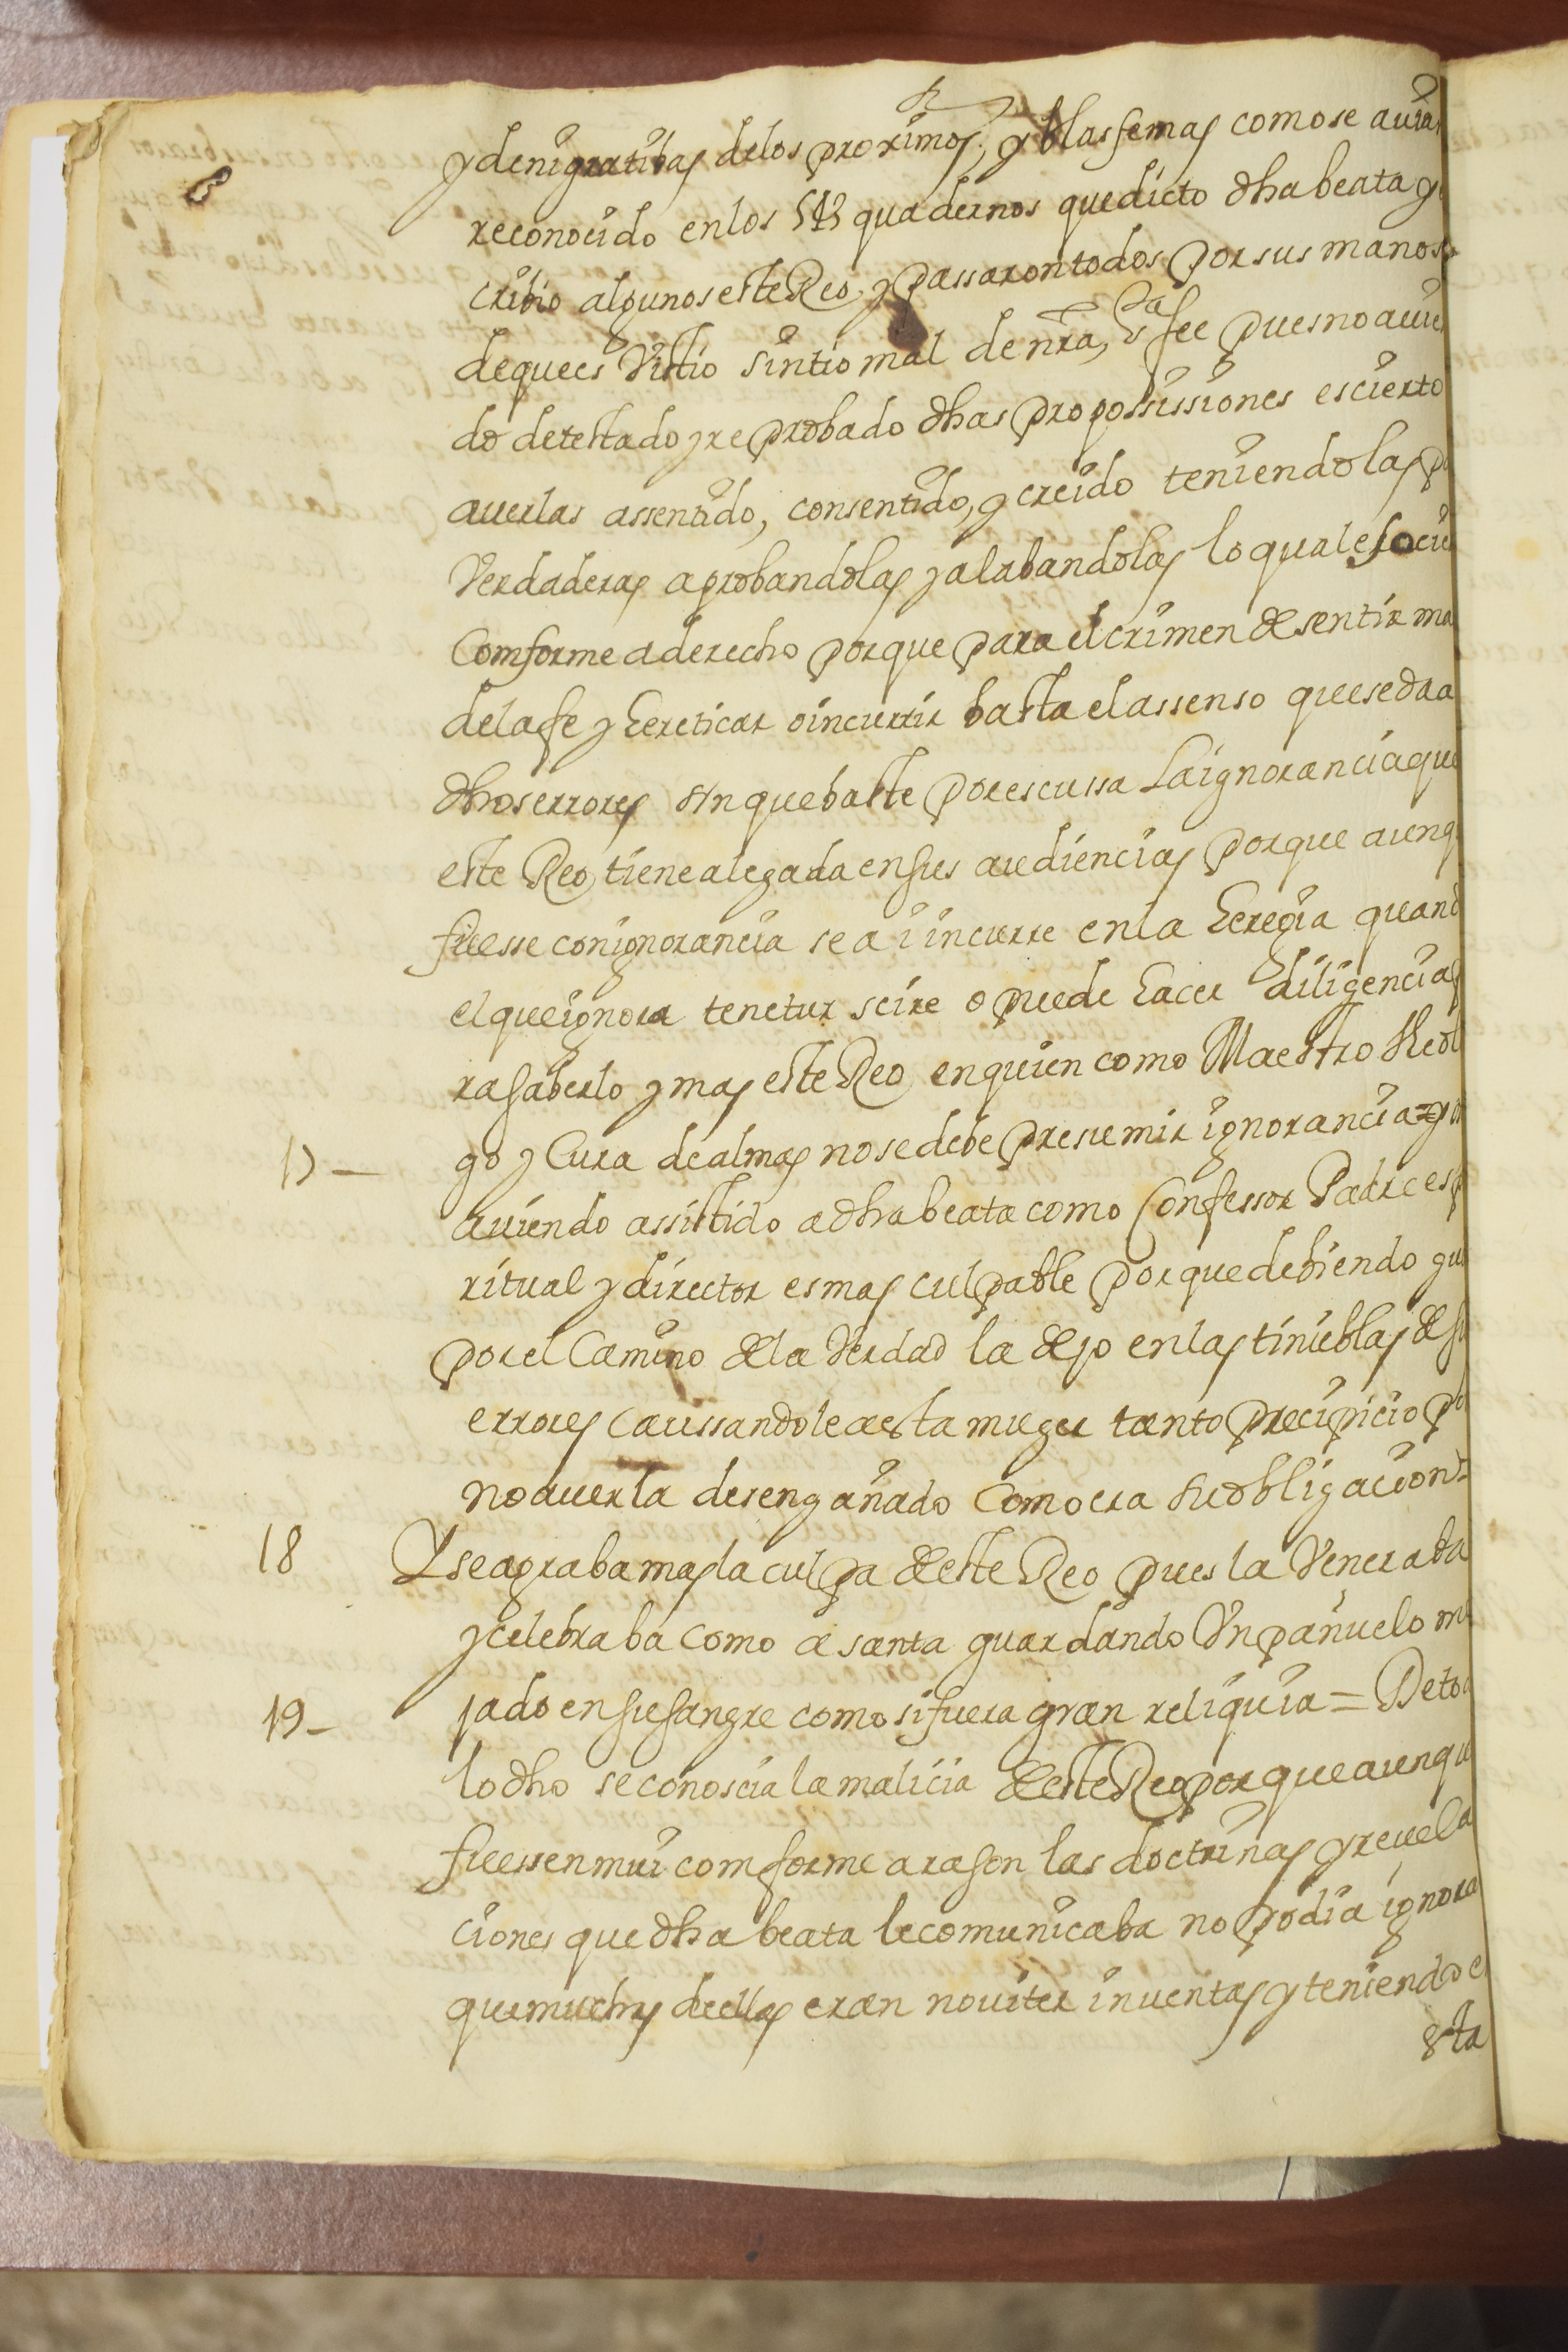 y denigratibas delos proximos, y blasfemas como se auia
reconocido en los quadernos que dicto dha beata y
cribio algunos este Reo, y passaron todos por sus manos
de que es Visto sintio mal de nra, Sta fee pues no auie
do detestado y reprobado dhas propossissiones es cierto
auerlas assentido, consentido, y creido teniendolas p
Verdaderas aprobandolas y alabandolas lo qual es
Comforme a derecho porque para el crimen de sentir ma
dela fe y hereticar o incurrir basta el assenso que se da a
dhos errores sin que baste por escussa La ignorancia que
este Reo, tiene alegada en sus audiencias porque aunq
fuesse con ignorancia se a i incurre en la heregia quand
el que ignora tenetur scire o puede hacer diligencias
ra saberlo y mas este Reo, en quien como Maestro theol
17 — go y Cura de almas no se debe presumir ignorancia = y
auiendo assistido a dha beata como Confessor Padre esp
ritual y director es mas culpable porque debiendo gu
por el Camino de la Verdad la dejo en las tinieblas de su
errores Caussandole a esta muger tanto precipicio po
no auerla desengañado Como era su obligacion =
18 Y se agraba mas la culpa de este Reo pues la Veneraba
y celebraba Como a santa guardando Un pañuelo m
19 — jado en su sangre como si fuera gran reliquia = De tod
lo dho se conoscia la malicia de este Reo porque aunqu
fuessen mui comforme a rason las doctrinas y reuela
ciones que dha beata le comunicaba no podia ignora
que muchas de ellas eran nouiter inuentas y teniendo e
sta